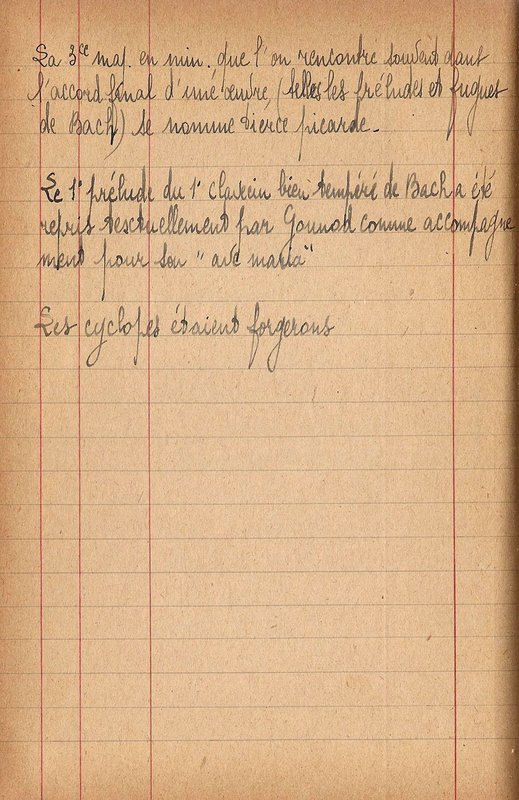 La 3ce maj. en min. que l'on rencontre souvent dans
l'accord final d'une œuvre (telles les préludes et fugues
de Bach) se nomme tierce picarde.
Le 1e prélude du 1e clavecin bien tempéré de Bach a été
repris textuellement par Gounod comme accompagne
ment pour son "ave maria"
Les cyclopes étaient forgerons